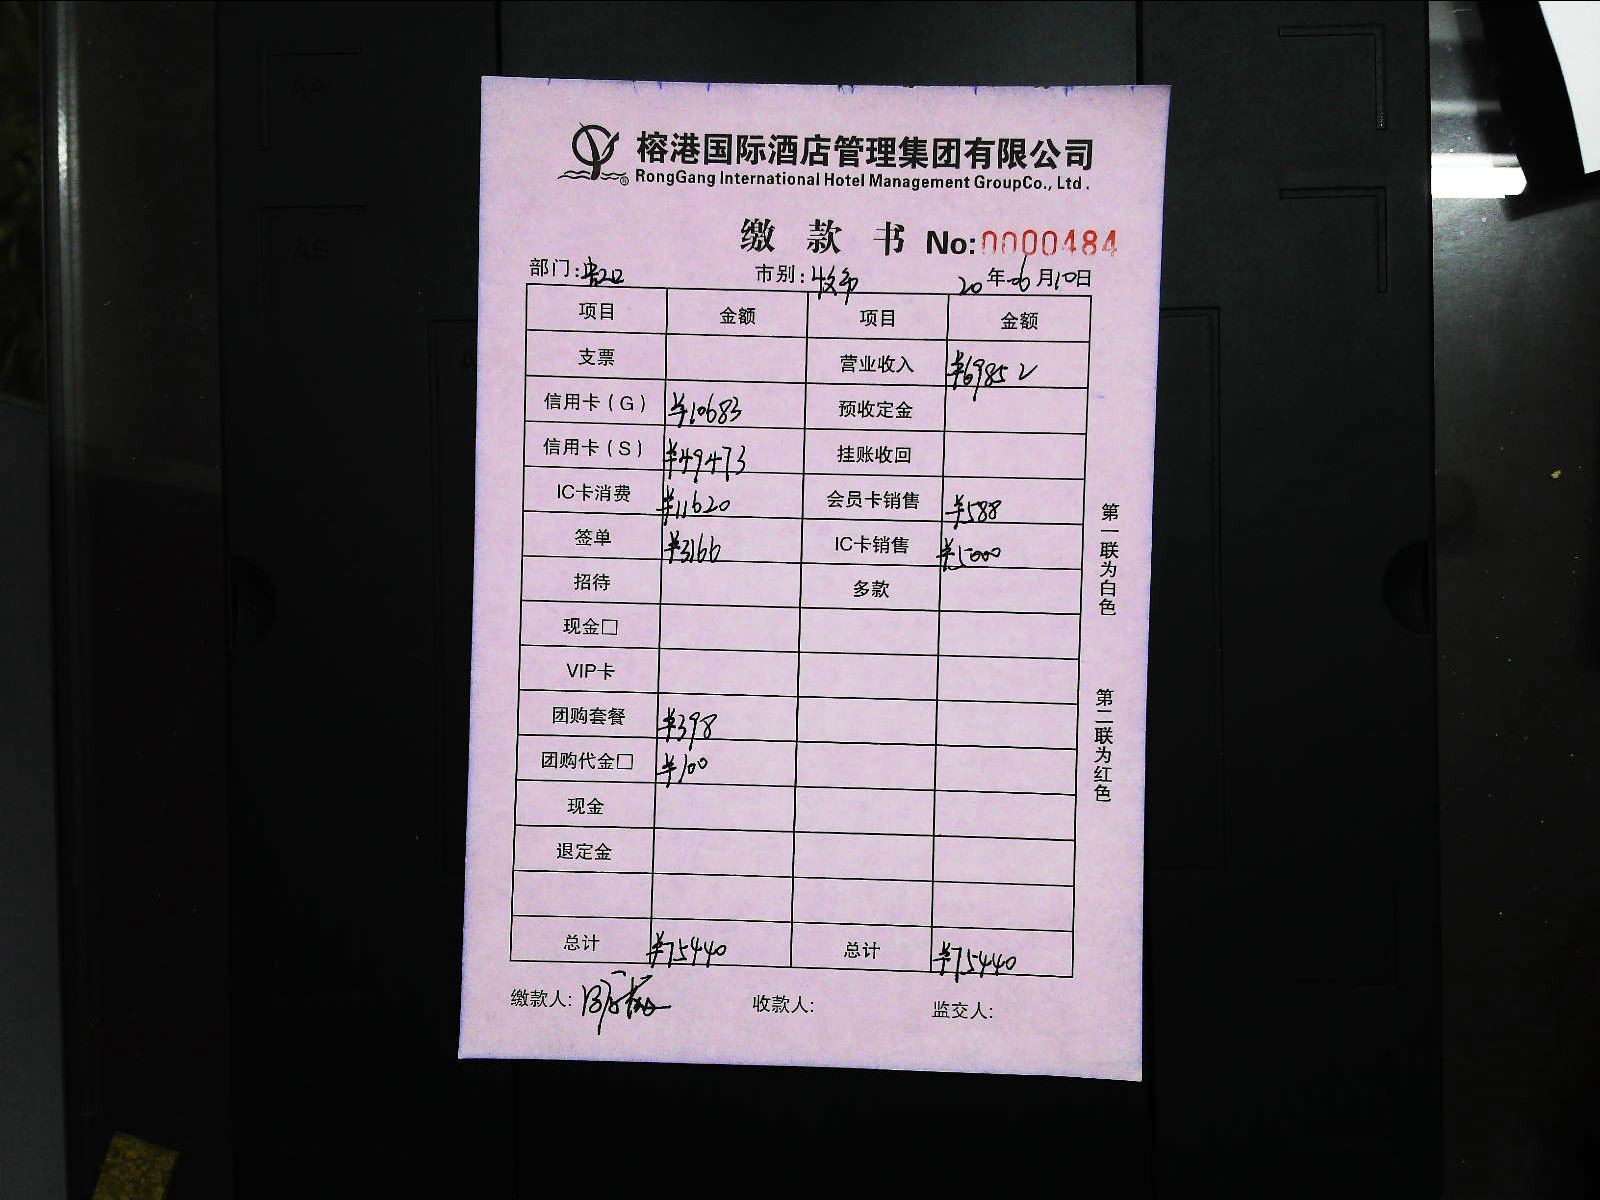 榕港国际酒店管理集团有限公司
RongGang International Hotel Management GroupCo., Ltd.
缴款书 No:0000484
部门: 市别:收市 20年06月10日
项目 金额 项目 金额
支票 营业收入 ¥69852
信用卡(G) ¥10683 预收定金
信用卡(S) ¥49473 挂账收回
IC卡消费 ¥11620 会员卡销售 ¥588
签单 ¥3166 IC卡销售 ¥5000
招待 多款
现金□
VIP卡
团购套餐 ¥398
团购代金□ ¥100
现金
退定金
总计 ¥75440 总计 ¥75440
缴款人: 收款人: 监交人:
第一联为白色
第二联为红色